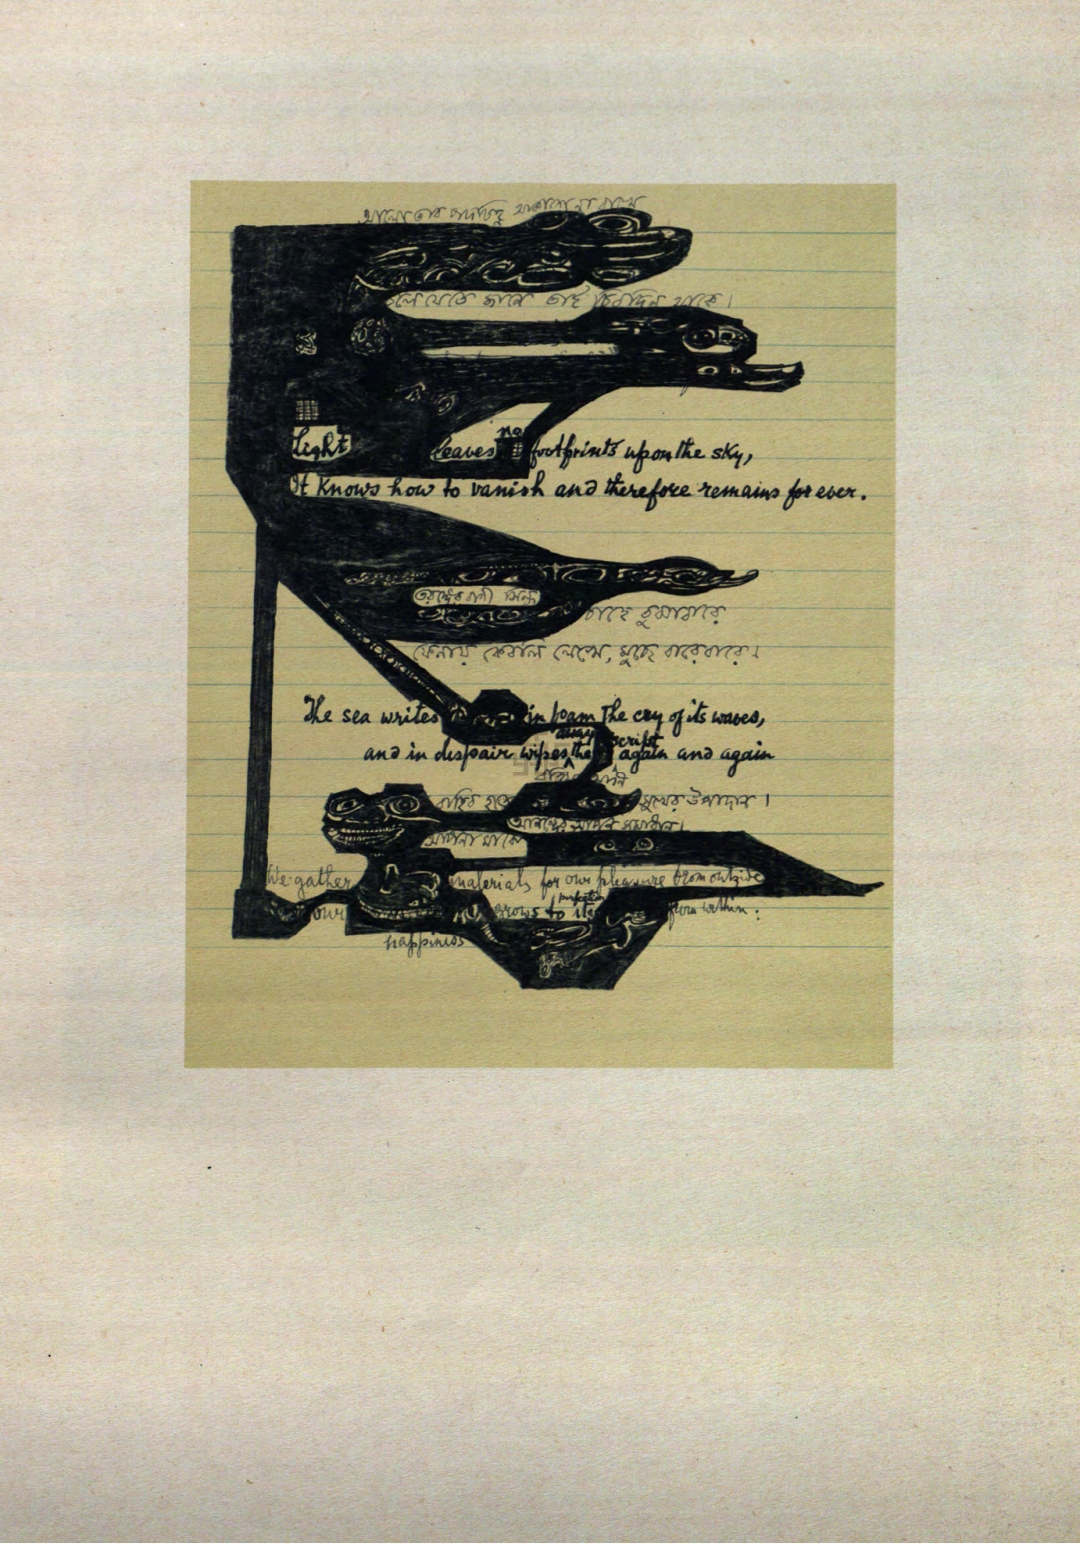 আলো তার পদচিহ্ন আকাশে না রাখে
চলে যেতে জানে তাই চিরদিন থাকে।
Light leaves no footprints upon the sky,
It knows how to vanish and therefore remains for ever.
তরঙ্গের বাণী সিন্ধু
চাহে বুঝাবারে
ফেনায় কেবলি লেখে, মুছে বারেবারে।
The sea writes in foam the cry of its waves,
and in despair wipes away the script again and again
বাহির হতে সুখের উপাদান।
আপনা মাঝে আনন্দের সমাধান।
We gather materials for our pleasure from outside
our grows to its perfection from within.
happiness